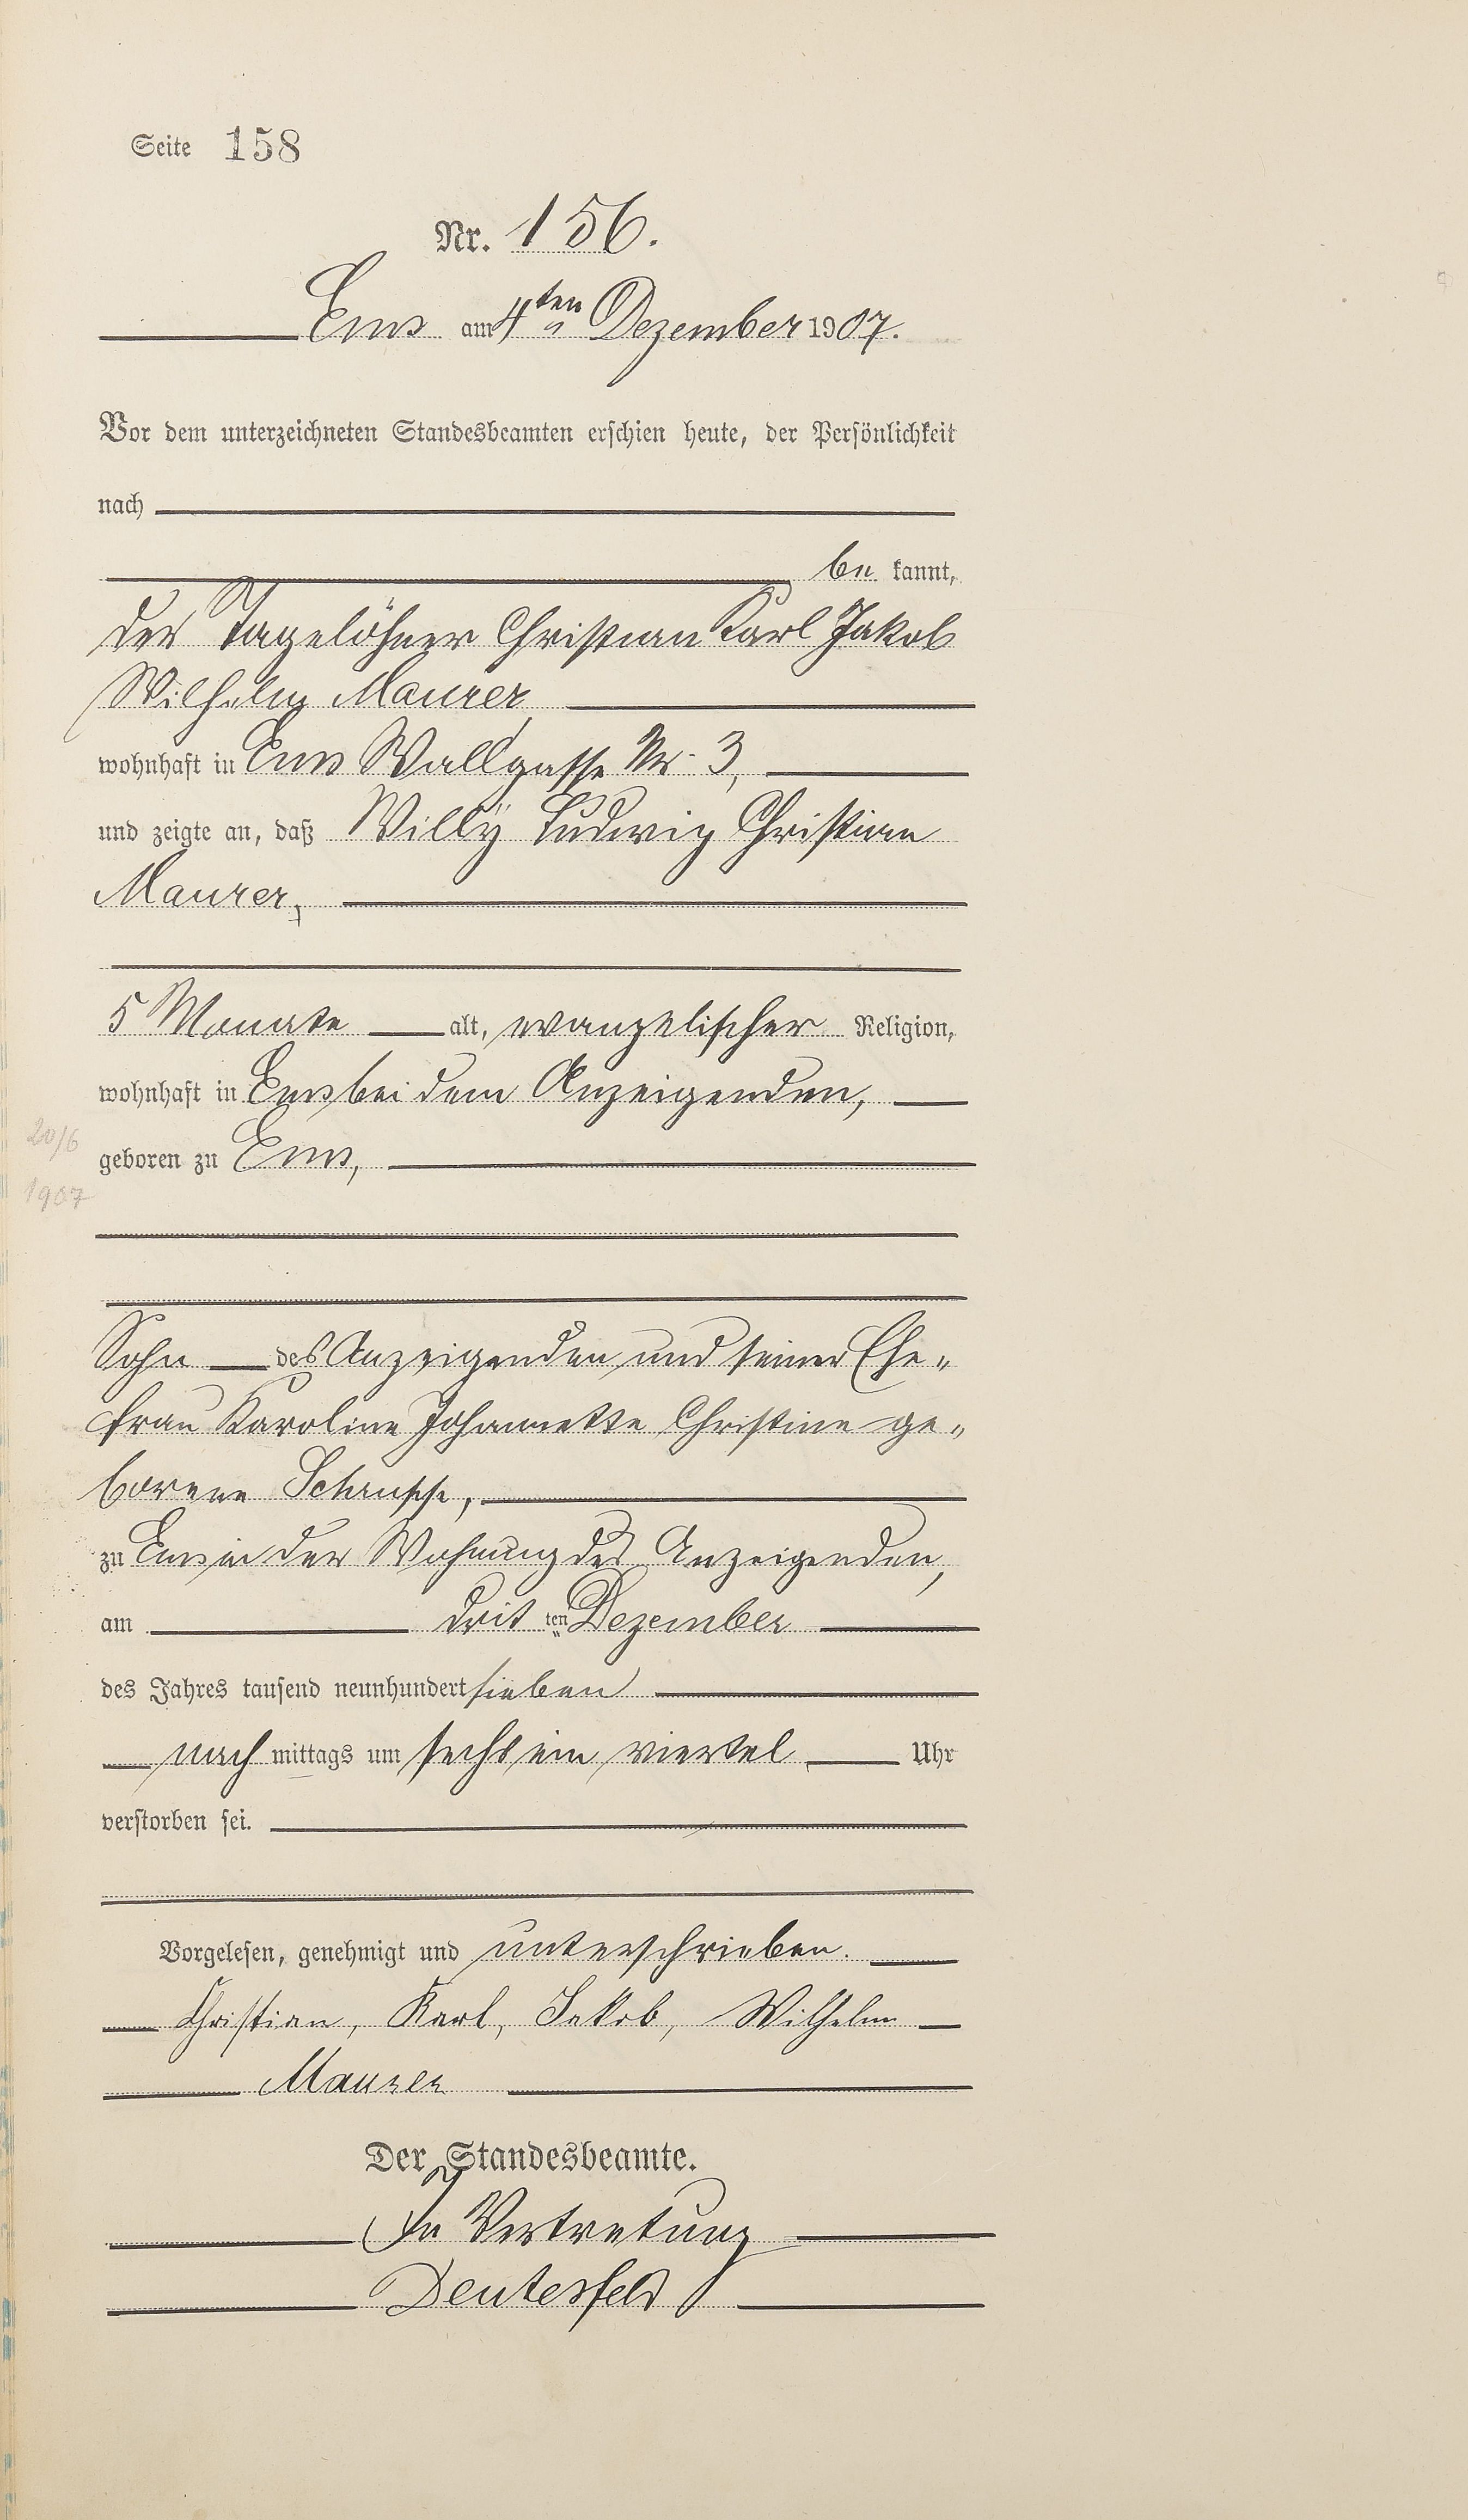 Seite 158
Nr. 156.
Ems am 4ten Dezember 1907.
Vor dem unterzeichneten Standesbeamten erschien heute, der Persönlichkeit
nach
be kannt,
der Tagelöhner Christian Karl Jakob
Wilhelm Maurer,
wohnhaft in Ems Wallgasse Nr. 3,
und zeigte an, daß Willy Ludwig Christian
Maurer,
5 Monate alt, evangelischer Religion,
wohnhaft in Ems bei dem Anzeigenden,
20/6
geboren zu Ems,
1907
Sohn des Anzeigenden und seiner Ehe-
frau Karoline Johannette Christine ge-
borene Schupp,
zu Ems in der Wohnung des Anzeigenden,
am drit ten Dezember
des Jahres tausend neunhundert sieben
nach mittags um sechs ein viertel Uhr
verstorben sei.
Vorgelesen, genehmigt und unterschrieben.
Christian, Karl, Jakob, Wilhelm
Maurer
Der Standesbeamte.
In Vertretung